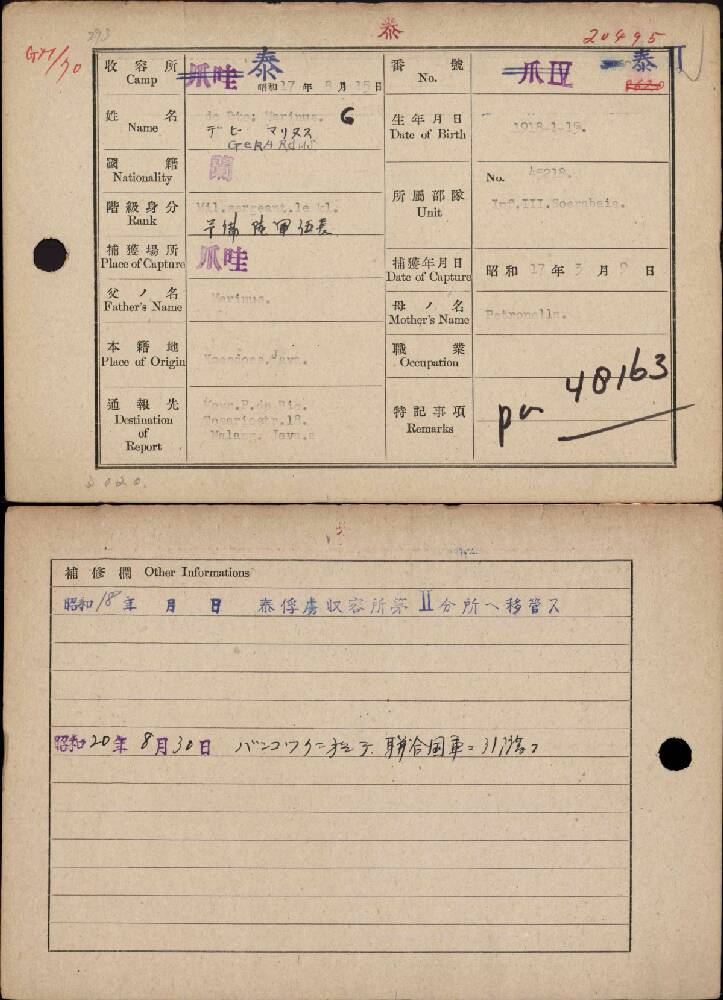 293
泰
20495
GM/70
收容所 Camp
爪哇 泰
昭和 17 年 8 月 15 日
番號 No.
爪 IV 泰 II
姓名 Name
Marinus. G
デ ビー マリヌス
GERARDUS
生年月日 Date of Birth
1918-1-15.
國籍 Nationality
蘭
所屬部隊 Unit
No. 45218.
Inf.III.Soerabaia.
階級身分 Rank
Mil.sergeant.1e kl.
予備 陸軍 伍長
捕獲場所 Place of Capture
爪哇
捕獲年月日 Date of Capture
昭和 17 年 3 月 9 日
父ノ名 Father's Name
Marinus.
母ノ名 Mother's Name
Petronella.
本籍地 Place of Origin
Java.
職業 Occupation
通報先 Destination of Report
Mevr.P.de Bie.
18.
Malang. Java.
特記事項 Remarks
pa 48163
補修欄 Other Informations
昭和 18 年 月 日 泰俘虜収容所第 II 分所ヘ移管ス
昭和 20 年 8 月 30 日 バンコックニ於テ 聯合国軍ニ引渡ス